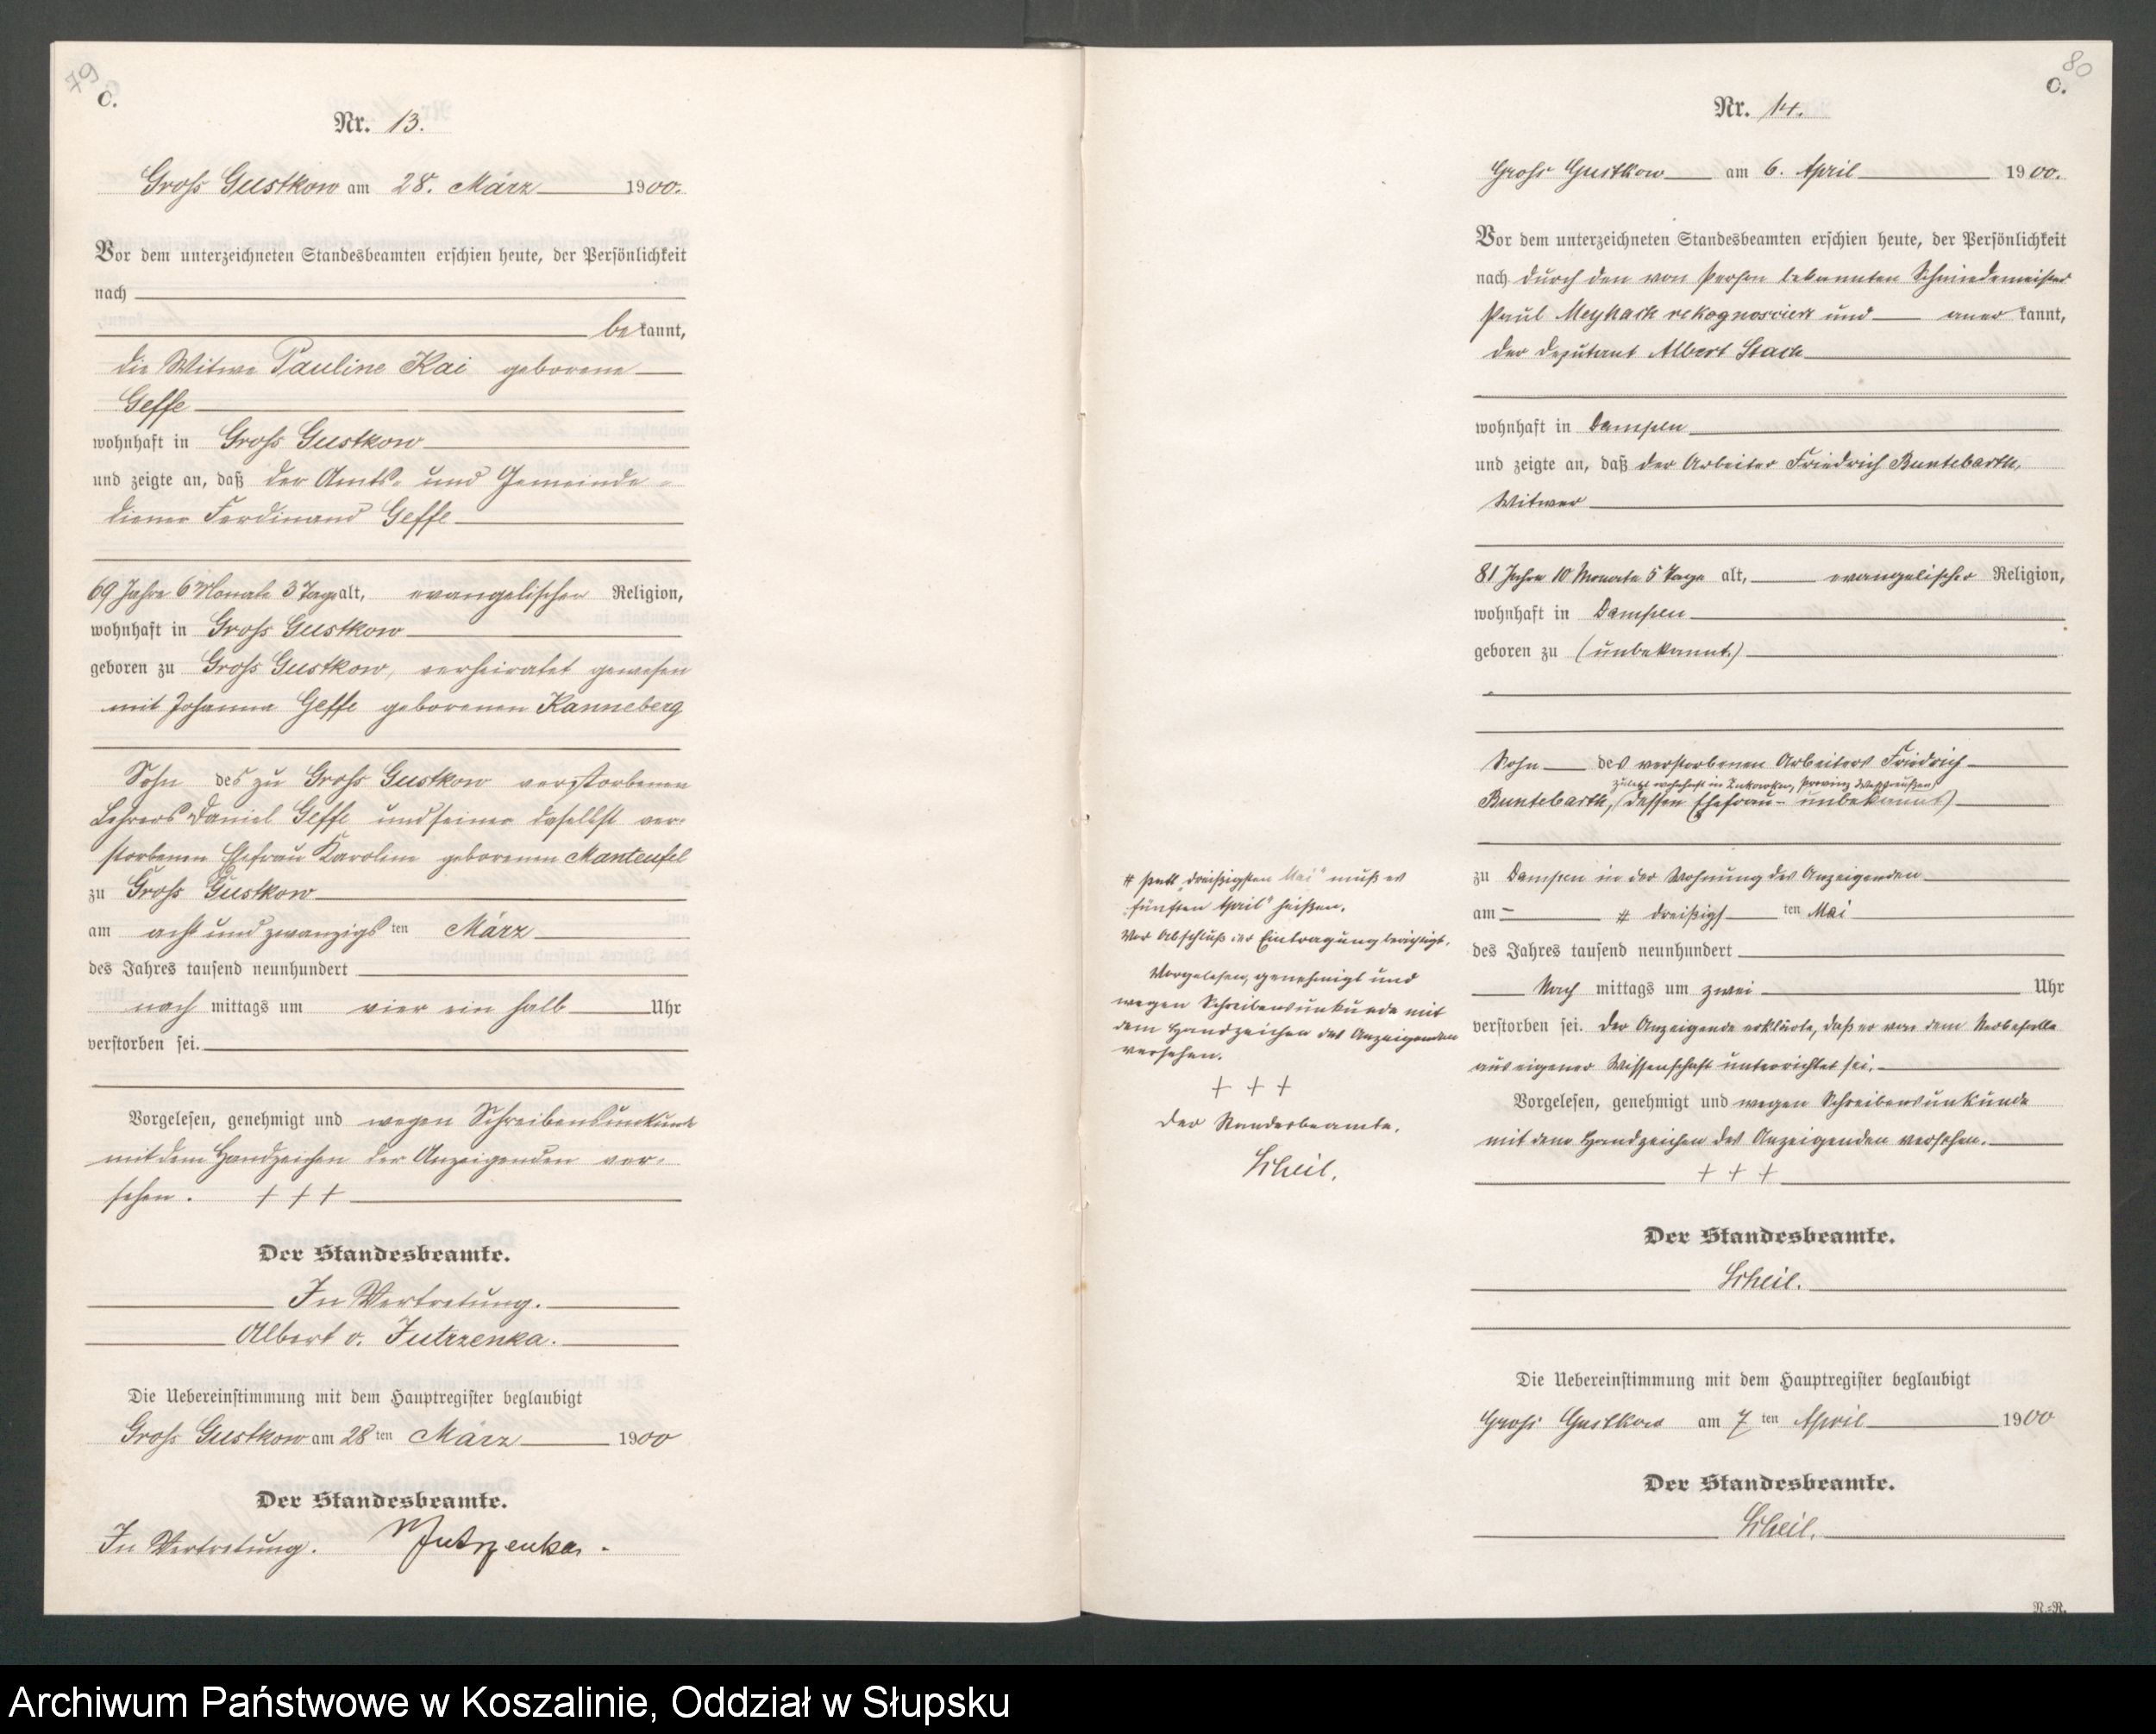 79
C.
Nr. 13.
Gross Gustkow am 28. März 1900.
Vor dem unterzeichneten Standesbeamten erschien heute, der Persönlichkeit
nach
be kannt,
die Witwe Pauline Kai geborene
Geffe
wohnhaft in Gross Gustkow
und zeigte an, daß der Amts- und Gemeinde-
diener Ferdinand Geffe
69 Jahre 6 Monate 3 Tage alt, evangelischer Religion,
wohnhaft in Gross Gustkow
geboren zu Gross Gustkow, verheiratet gewesen
mit Johanna Geffe geborenen Kanneberg
Sohn des zu Gross Gustkow verstorbenen
Lehrers Daniel Geffe und seiner daselbst ver-
storbenen Ehefrau Karoline geborenen Manteufel
zu Gross Gustkow
am acht und zwanzigs ten März
des Jahres tausend neunhundert
nach mittags um vier ein halb Uhr
verstorben sei.
Vorgelesen, genehmigt und wegen Schreibensunkunde
mit dem Handzeichen der Anzeigenden ver-
sehen. + + +
Der Standesbeamte.
In Vertretung.
Albert v. Jutrzenka.
Die Uebereinstimmung mit dem Hauptregister beglaubigt
Gross Gustkow am 28 ten März 1900
Der Standesbeamte.
In Vertretung. Jutrzenka.
80
C.
Nr. 14.
Gross Gustkow am 6. April 1900.
Vor dem unterzeichneten Standesbeamten erschien heute, der Persönlichkeit
nach durch den von Person bekannten Schmiedemeister
Paul rekognosciert und aner kannt,
der Deputant Albert Stack
wohnhaft in Dampen
und zeigte an, daß der Arbeiter Friedrich Buntebarth,
Witwer
81 Jahre 10 Monate 5 Tage alt, evangelischer Religion,
wohnhaft in Dampen
geboren zu (unbekannt.)
Sohn des verstorbenen Arbeiters Friedrich
zuletzt wohnhaft in Provinz Westpreußen
Buntebarth, (dessen Ehefrau - unbekannt)
zu Dampen in der Wohnung des Anzeigenden
am # dreißigs ten Mai
des Jahres tausend neunhundert
Nach mittags um zwei Uhr
verstorben sei. Der Anzeigende erklärte, daß er von dem Sterbefalle
aus eigener Wissenschaft unterrichtet sei.
Vorgelesen, genehmigt und wegen Schreibensunkunde
mit dem Handzeichen des Anzeigenden versehen.
+ + +
Der Standesbeamte.
Scheil.
Die Uebereinstimmung mit dem Hauptregister beglaubigt
Gross Gustkow am 7 ten April 1900
Der Standesbeamte.
Scheil.
# statt „dreißigsten Mai“ muß es
„fünften April“ heißen.
Vor Abschluß der Eintragung berichtigt.
Vorgelesen, genehmigt und
wegen Schreibensunkunde mit
dem Handzeichen des Anzeigenden
versehen.
+ + +
Der Standesbeamte.
Scheil.
N.-R.
Archiwum Państwowe w Koszalinie, Oddział w Słupsku